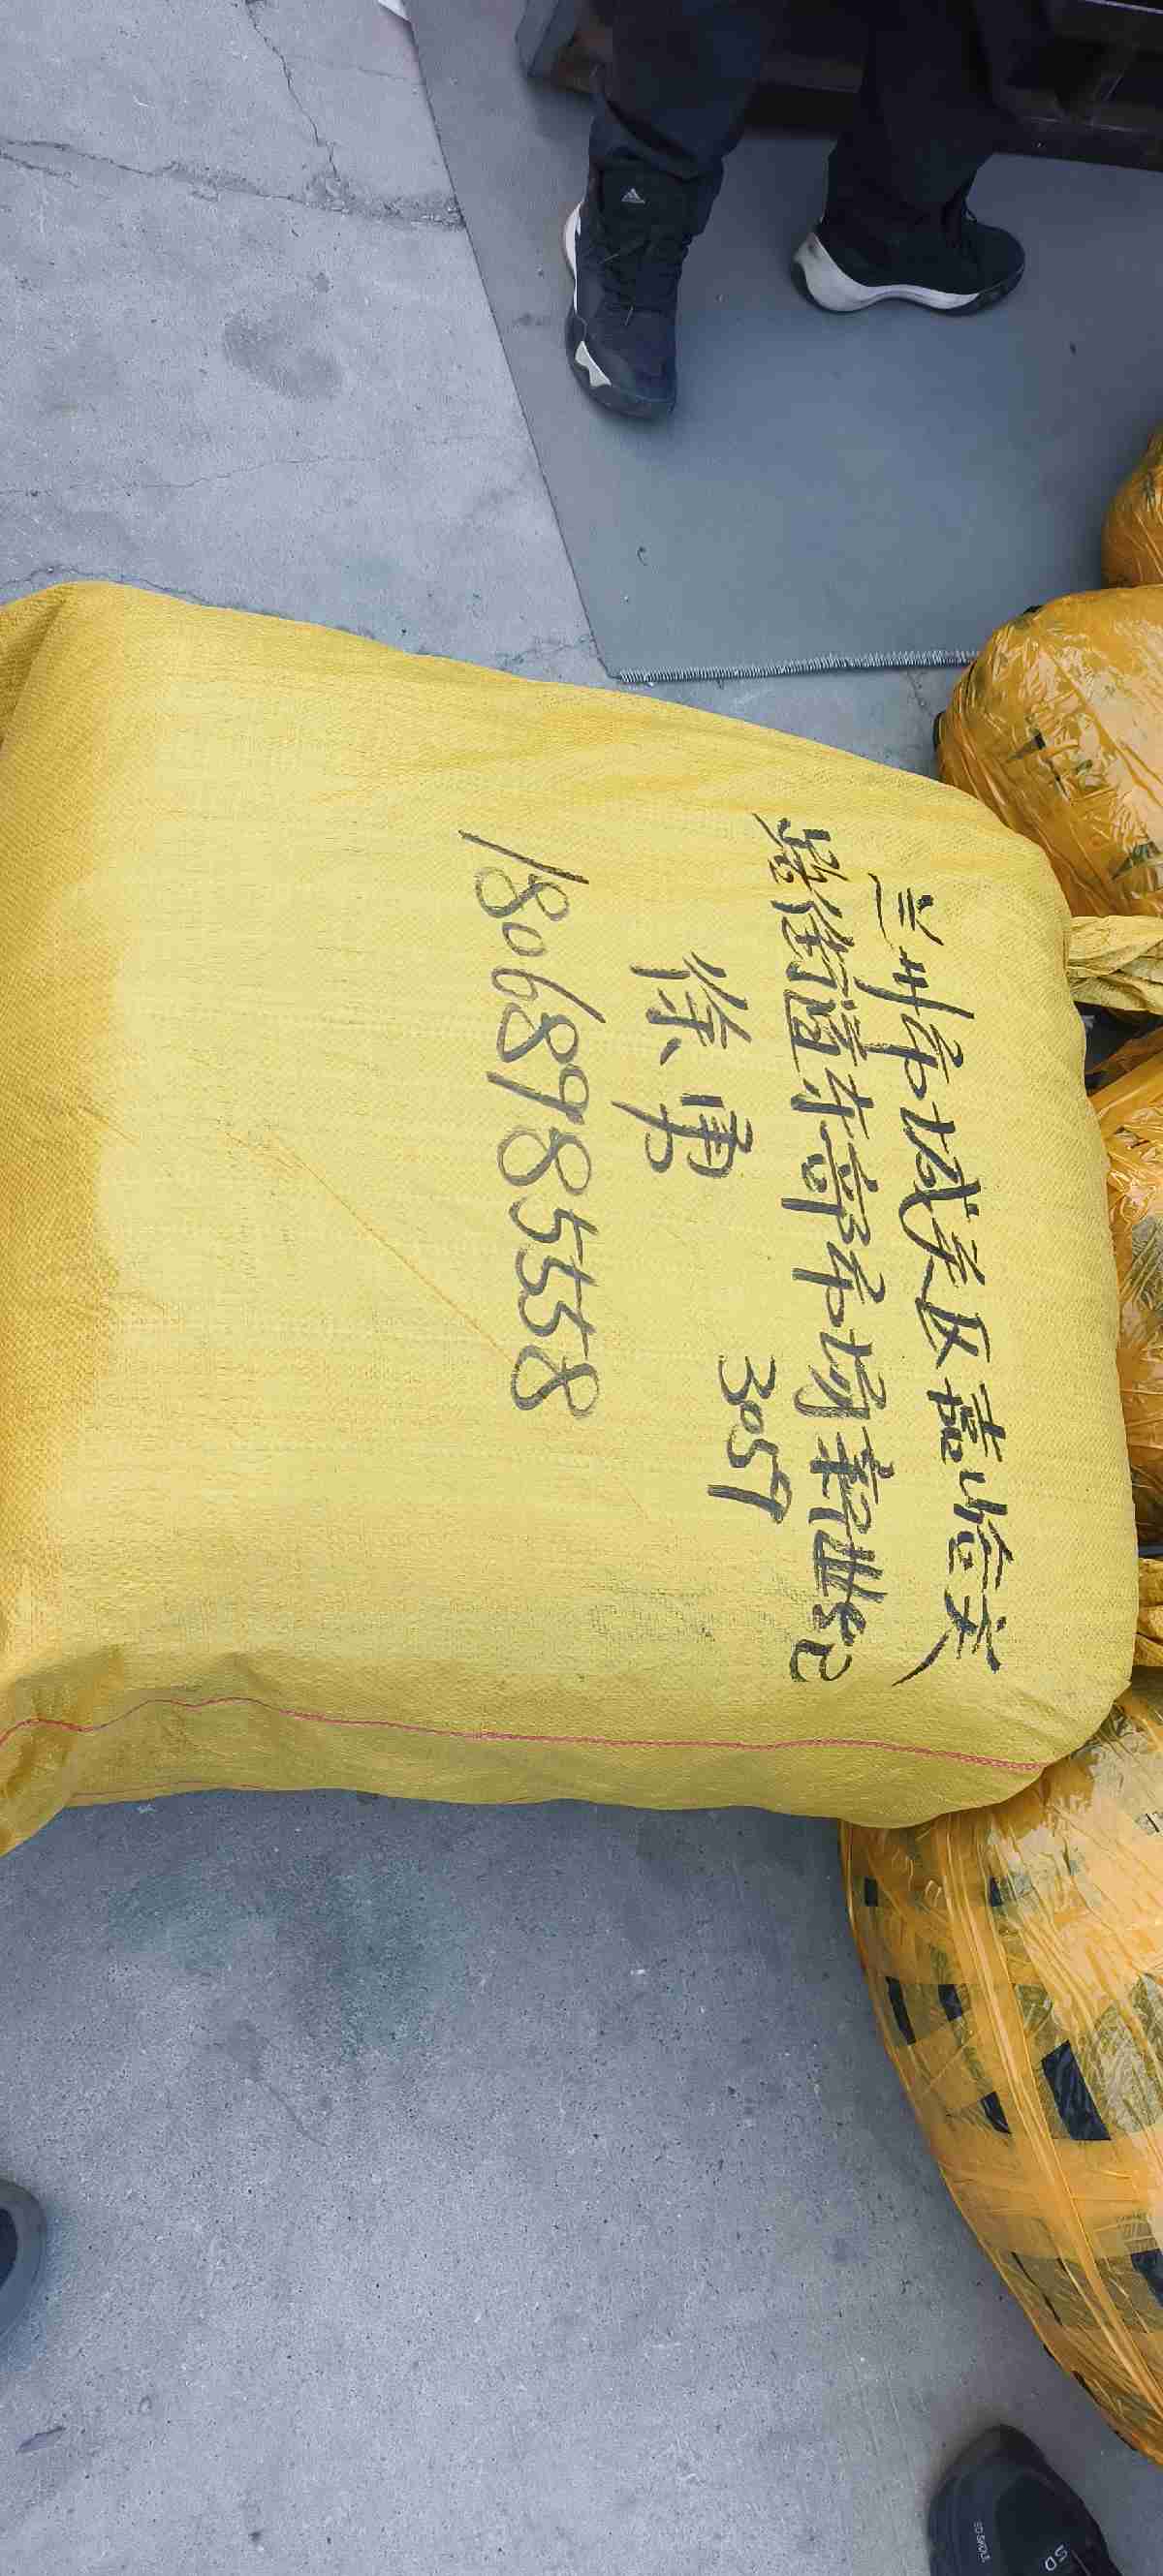 兰州市城关区嘉峪关
路街道东部市场新世纪
3059
徐勇
18068985558